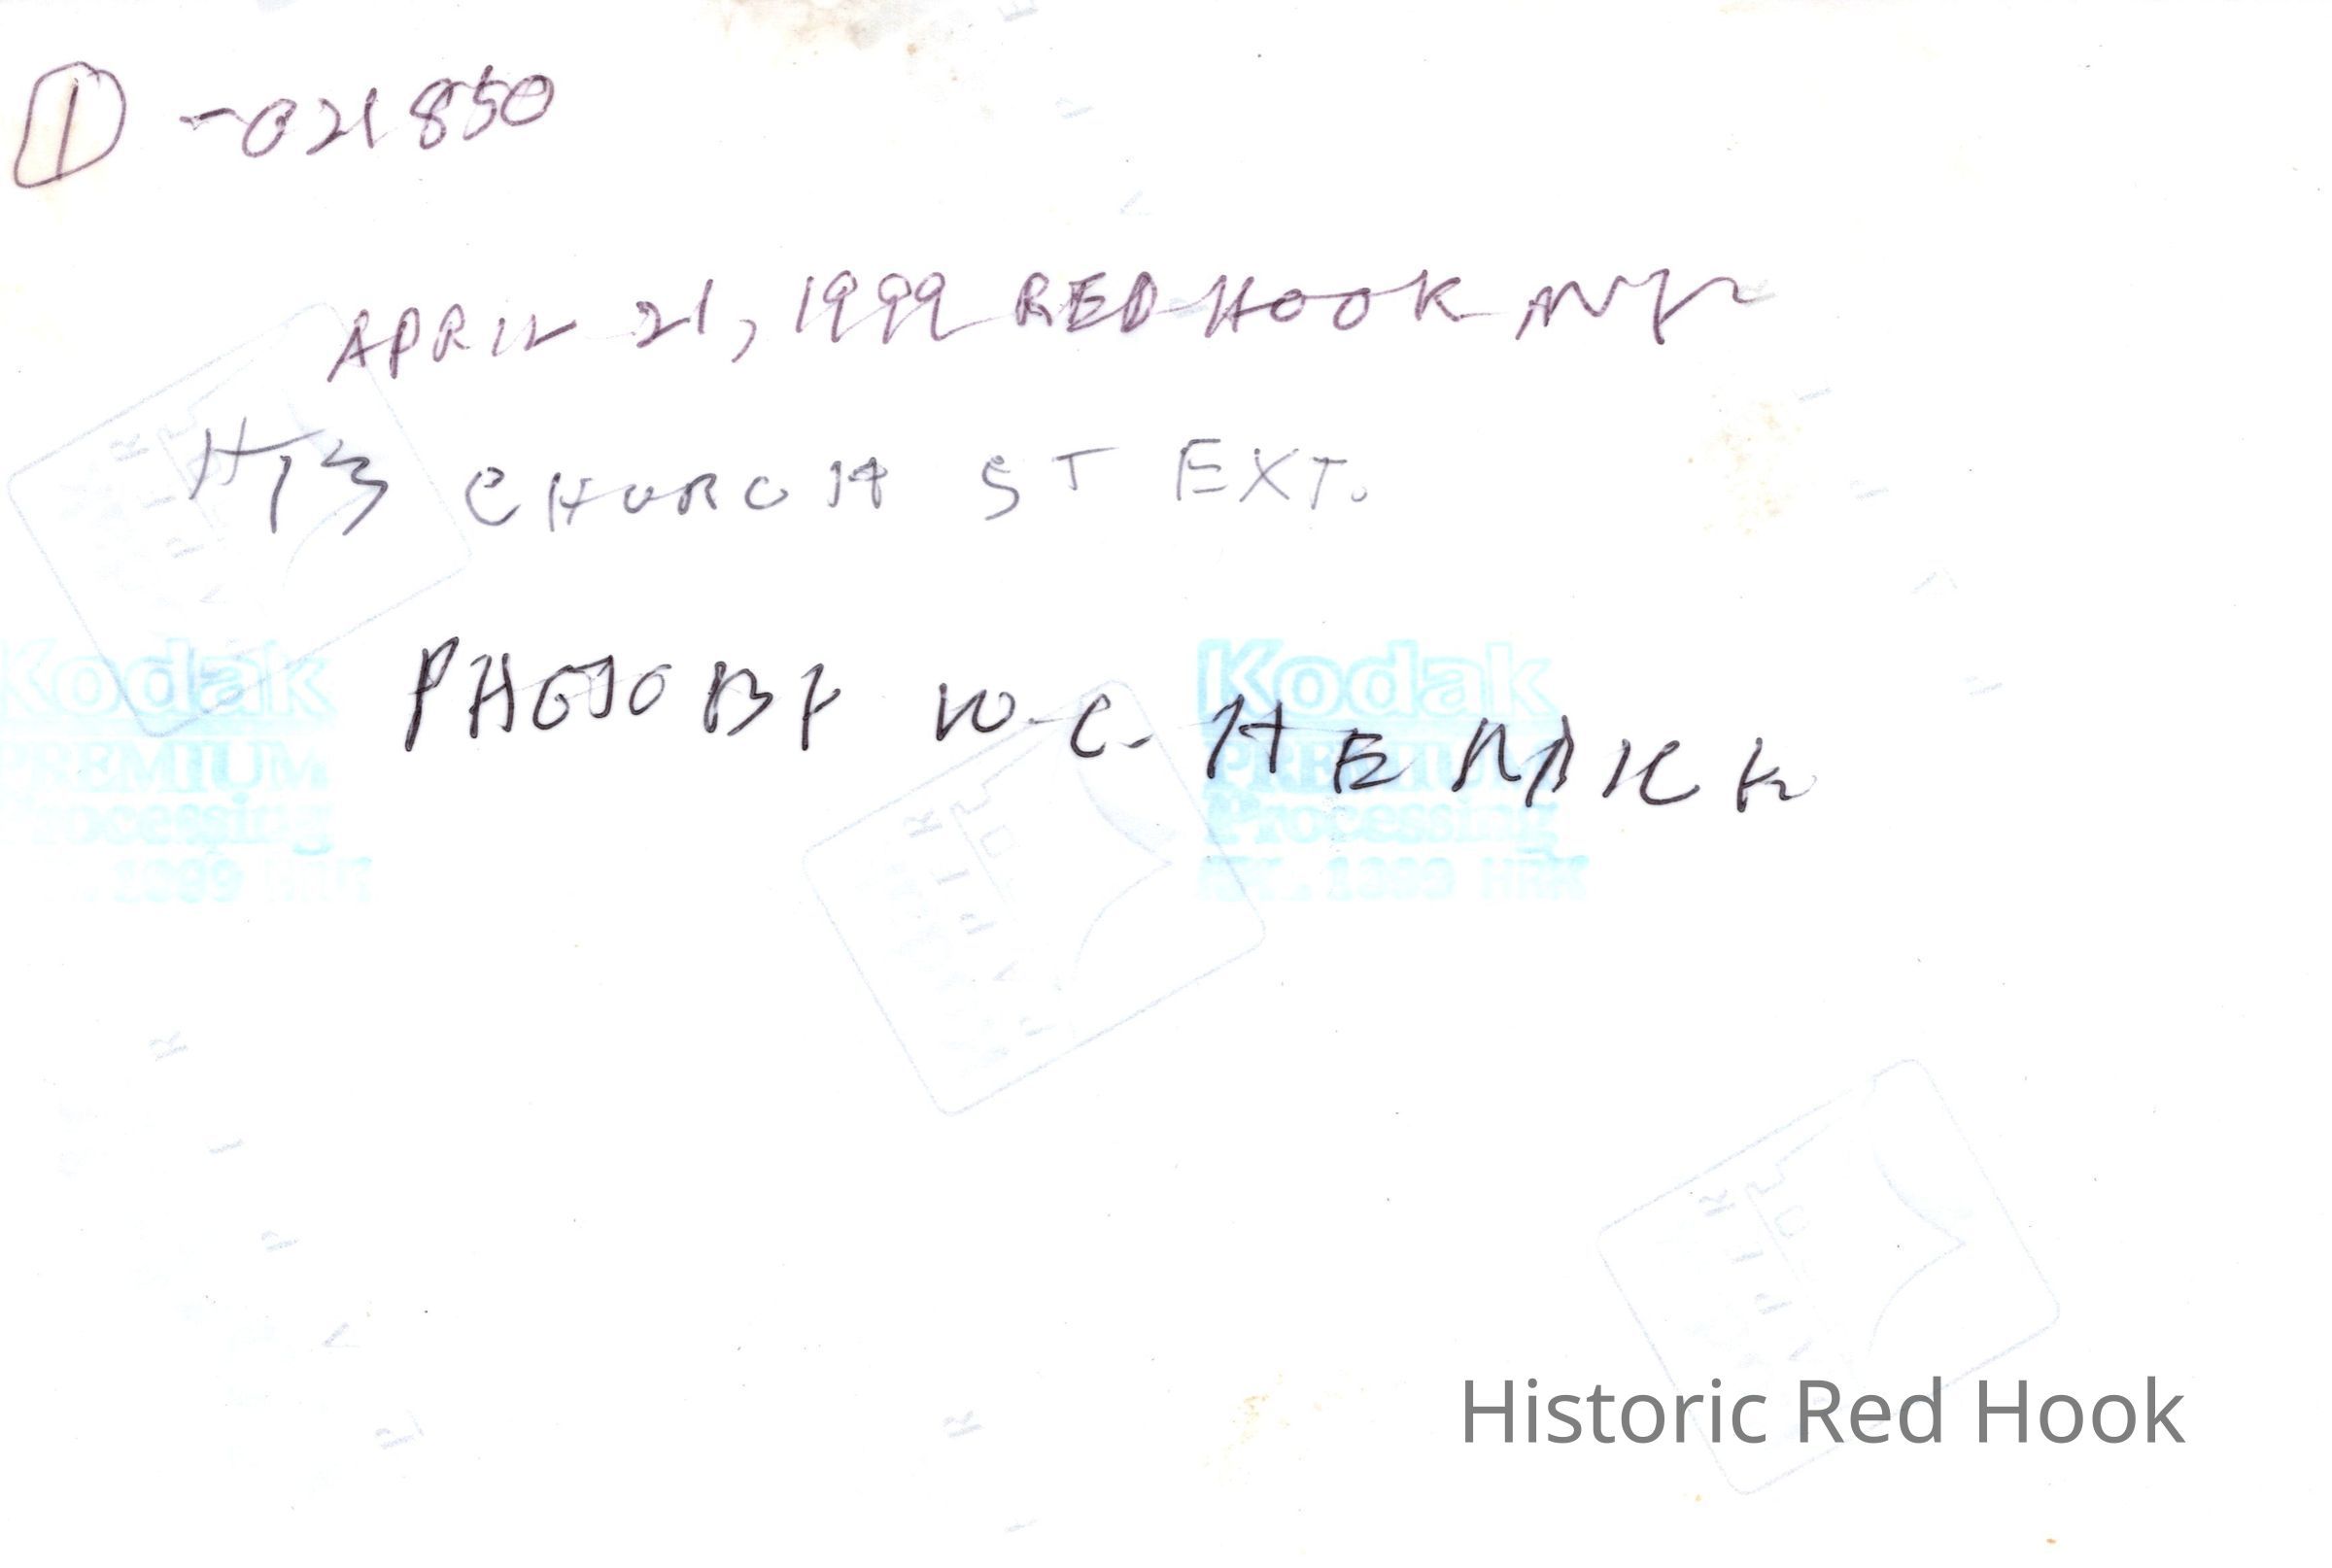 ① -021850
APRIL 21, 1999 RED HOOK NY
CHURCH ST EXT.
PHOTO BY W.C. HERRICK
Kodak Kodak
PREMIUM PREMIUM
Processing Processing
1999 1999
Historic Red Hook